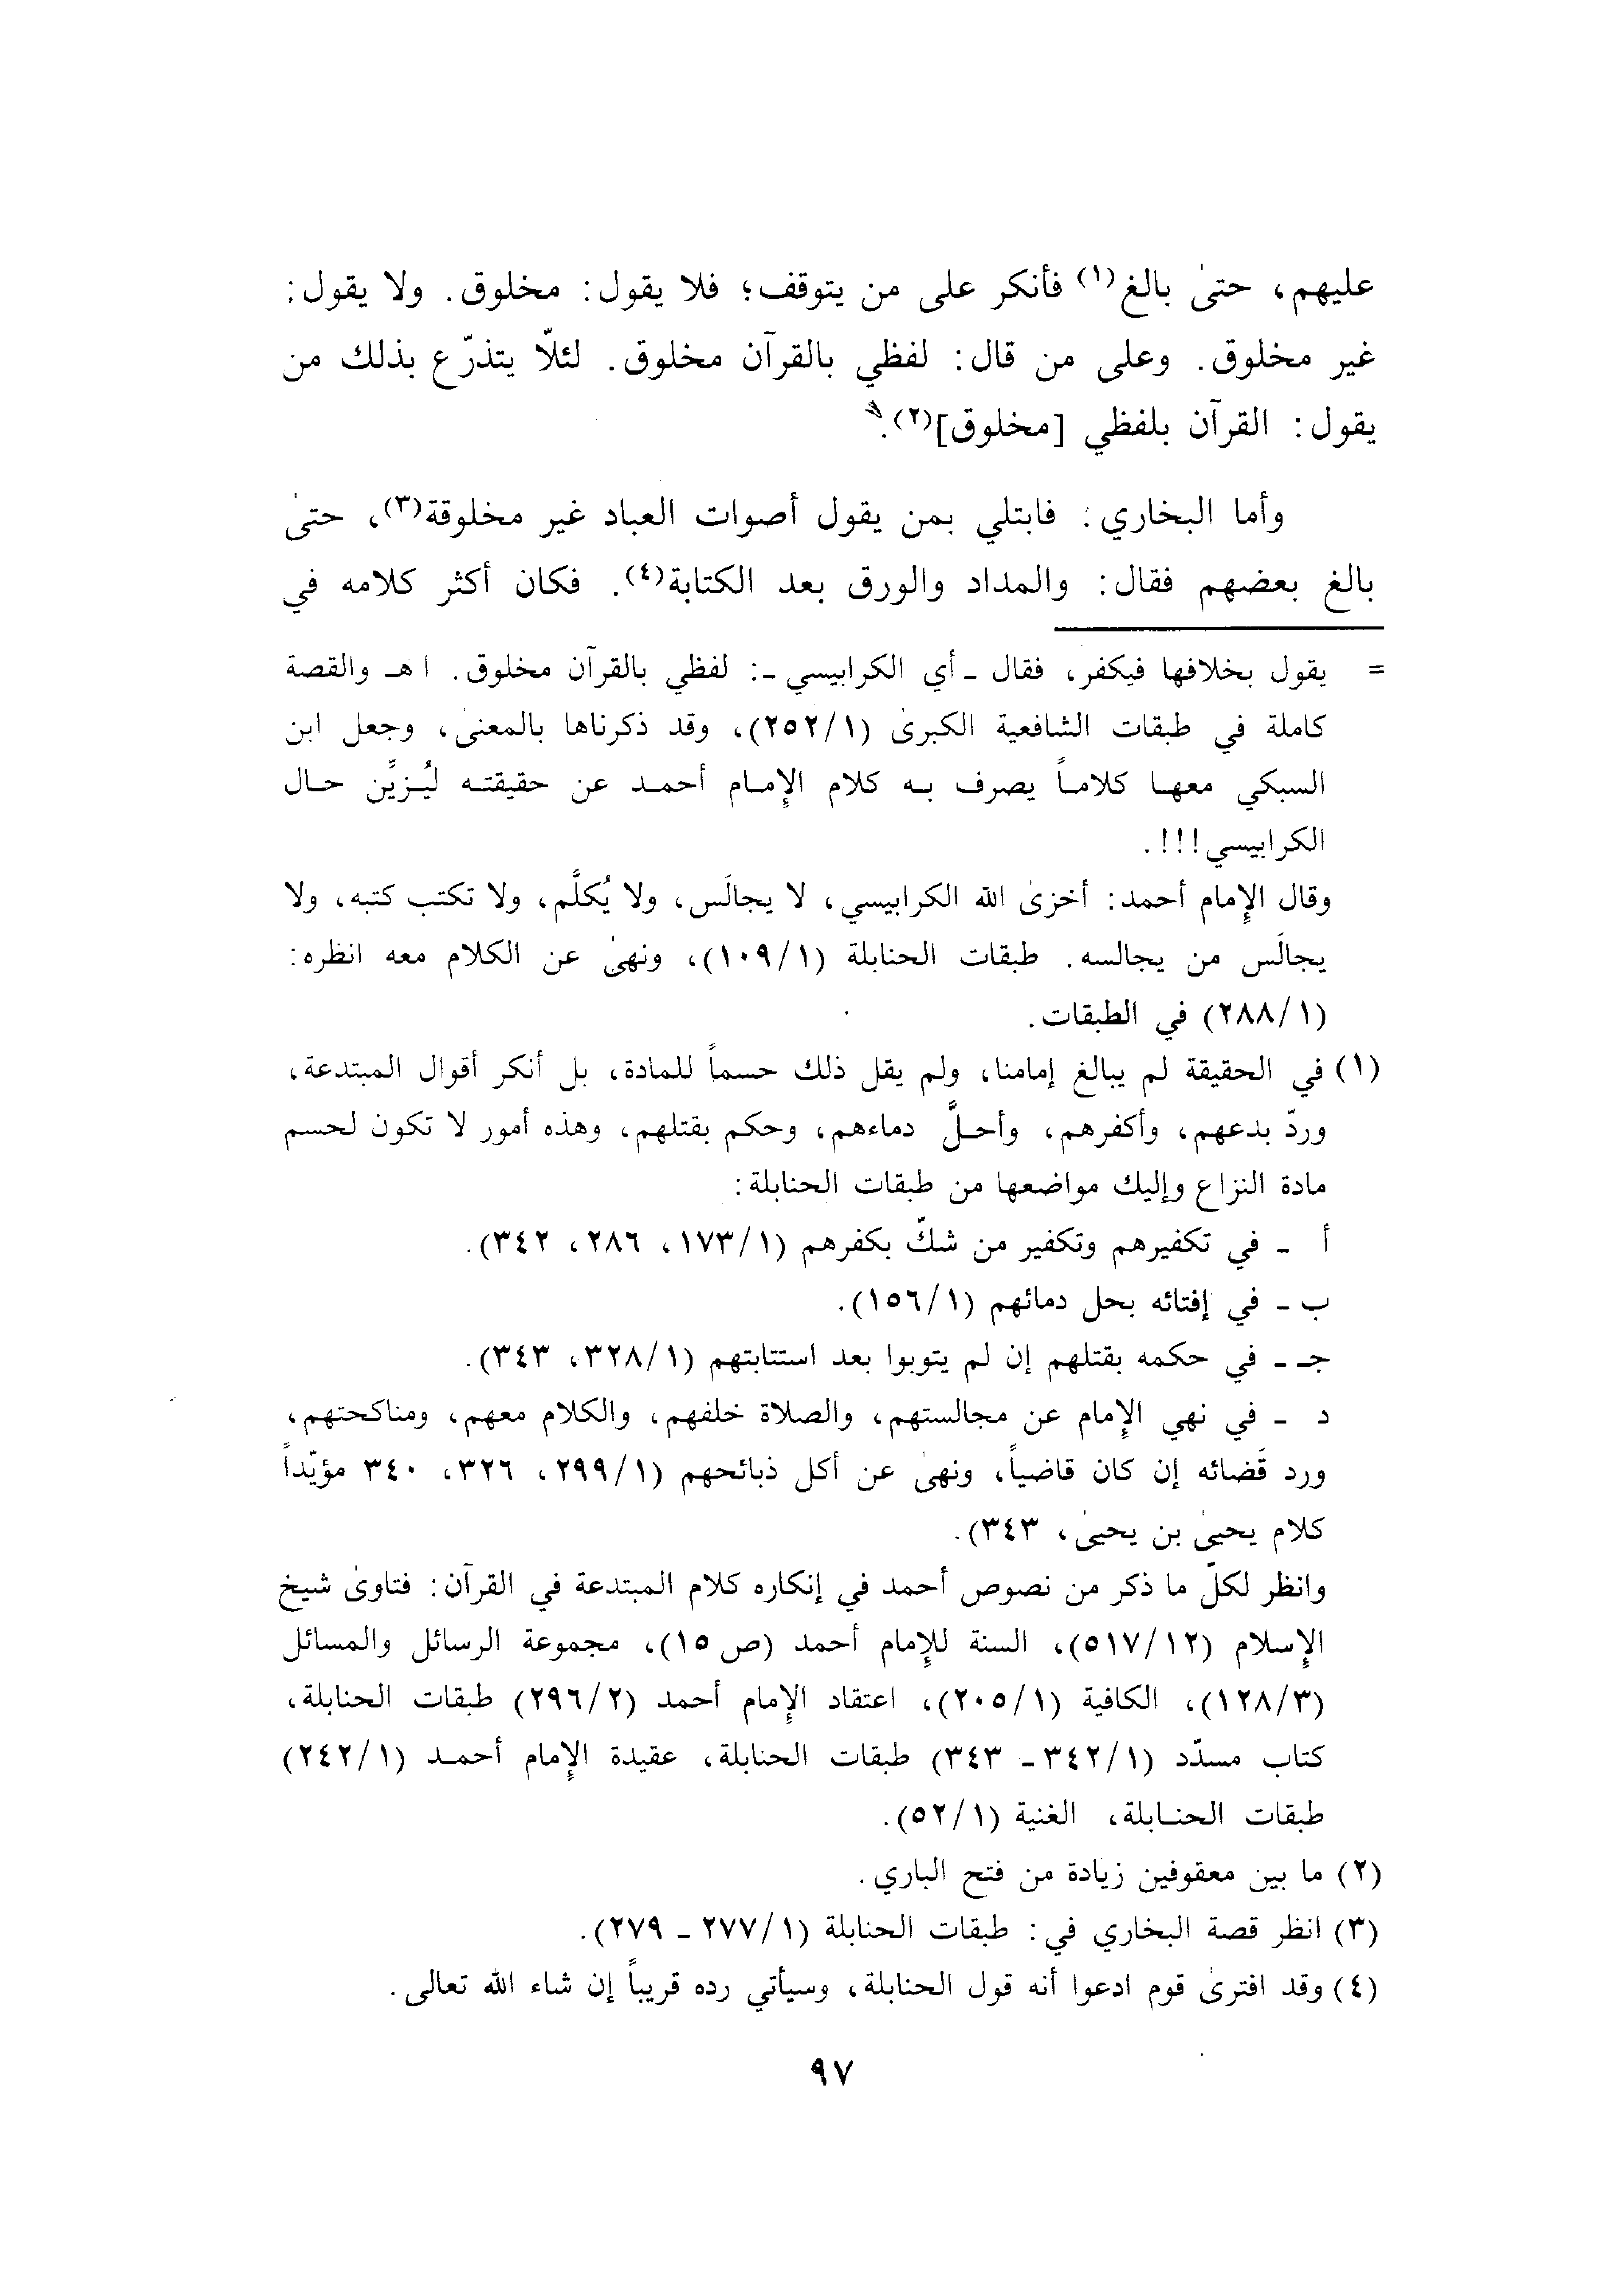 عليهم، حتىٰ بالغ(١) فأنكر على من يتوقف؛ فلا يقول: مخلوق. ولا يقول:
غير مخلوق. وعلى من قال: لفظي بالقرآن مخلوق. لئلّا يتذرّع بذلك من
يقول: القرآن بلفظي [مخلوق](٢).
وأما البخاري: فابتلي بمن يقول أصوات العباد غير مخلوقة(٣)، حتىٰ
بالغ بعضهم فقال: والمداد والورق بعد الكتابة(٤). فكان أكثر كلامه في
= يقول بخلافها فيكفر، فقال ـ أي الكرابيسي ـ: لفظي بالقرآن مخلوق. اهـ والقصة
كاملة في طبقات الشافعية الكبرىٰ (٢٥٢/١)، وقد ذكرناها بالمعنىٰ، وجعل ابن
السبكي معها كلاماً يصرف به كلام الإمام أحمد عن حقيقته ليُزيِّن حال
الكرابيسي!!!.
وقال الإمام أحمد: أخزىٰ الله الكرابيسي، لا يجالَس، ولا يُكلَّم، ولا تكتب كتبه، ولا
يجالَس من يجالسه. طبقات الحنابلة (١٠٩/١)، ونهىٰ عن الكلام معه انظره:
(٢٨٨/١) في الطبقات.
(١) في الحقيقة لم يبالغ إمامنا، ولم يقل ذلك حسماً للمادة، بل أنكر أقوال المبتدعة،
وردّ بدعهم، وأكفرهم، وأحلَّ دماءهم، وحكم بقتلهم، وهذه أمور لا تكون لحسم
مادة النزاع وإليك مواضعها من طبقات الحنابلة:
أ ـ في تكفيرهم وتكفير من شكّ بكفرهم (١٧٣/١، ٢٨٦، ٣٤٢).
ب ـ في إفتائه بحل دمائهم (١٥٦/١).
جـ ـ في حكمه بقتلهم إن لم يتوبوا بعد استتابتهم (٣٢٨/١، ٣٤٣).
د ـ في نهي الإمام عن مجالستهم، والصلاة خلفهم، والكلام معهم، ومناكحتهم،
ورد قَضائه إن كان قاضياً، ونهىٰ عن أكل ذبائحهم (٢٩٩/١، ٣٢٦، ٣٤٠ مؤيّداً
كلام يحيىٰ بن يحيىٰ، ٣٤٣).
وانظر لكلّ ما ذكر من نصوص أحمد في إنكاره كلام المبتدعة في القرآن: فتاوىٰ شيخ
الإسلام (٥١٧/١٢)، السنة للإمام أحمد (ص ١٥)، مجموعة الرسائل والمسائل
(١٢٨/٣)، الكافية (٢٠٥/١)، اعتقاد الإمام أحمد (٢٩٦/٢) طبقات الحنابلة،
كتاب مسدّد (٣٤٢/١ ـ ٣٤٣) طبقات الحنابلة، عقيدة الإمام أحمد (٢٤٢/١)
طبقات الحنابلة، الغنية (٥٢/١).
(٢) ما بين معقوفين زيادة من فتح الباري.
(٣) انظر قصة البخاري في: طبقات الحنابلة (٢٧٧/١ ـ ٢٧٩).
(٤) وقد افترىٰ قوم ادعوا أنه قول الحنابلة، وسيأتي رده قريباً إن شاء الله تعالى.
٩٧